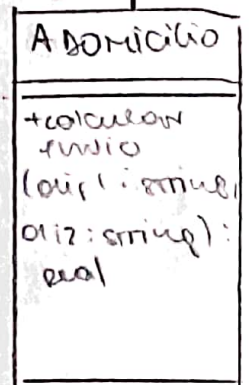 ADOMICILIO
+calcular
envio
(dir1: string,
dir2: string):
real